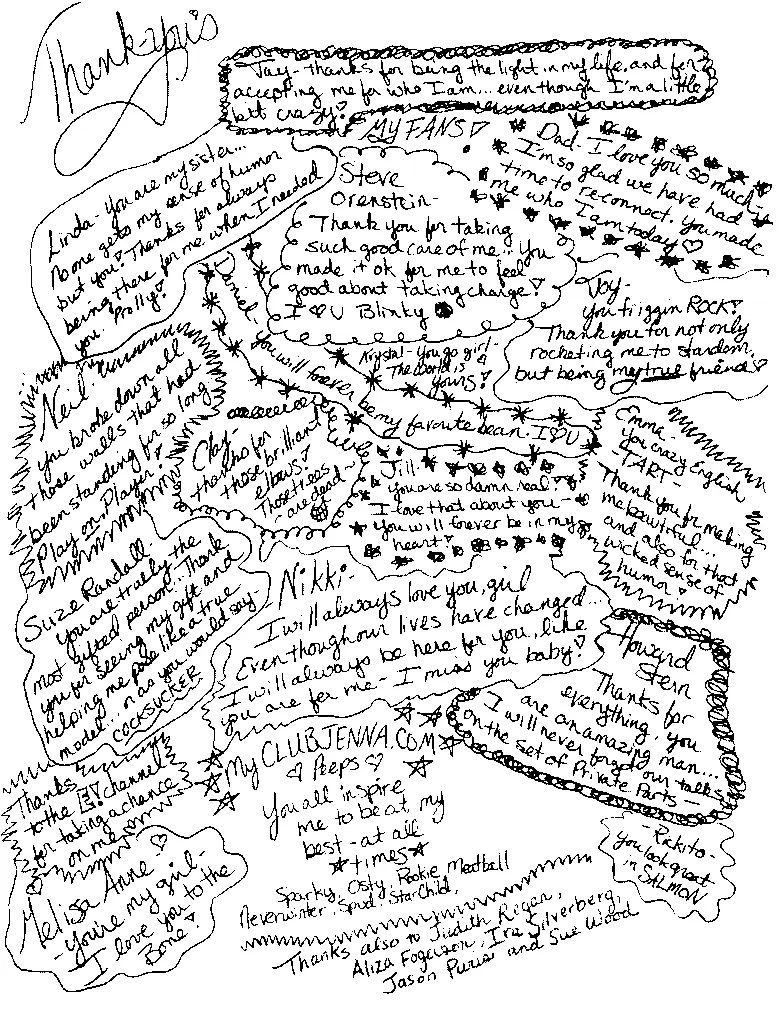 Thank-you's
Jay- thanks for being the light in my life, and for
accepting me for who I am... even though I'm a little
bit crazy!
MY FANS
Dad- I love you so much-
I'm so glad we have had
time to reconnect, you made
me who I am today
Linda- You are my sister...
No one gets my sense of humor
but you! Thanks for always
being there for me when I needed
you. Prolly!
Steve
Orenstein-
Thank you for taking
such good care of me... You
made it ok for me to feel
good about taking charge!
I ♡ U Blinky
Joy-
you friggin ROCK!
Thank you for not only
rocketing me to stardom,
but being my true friend
Daniel you will forever be my favorite bean. I ♡ U
Krystal- you go girl-
The world is
yours!
Neil-
you broke down all
those walls that had
been standing for so long
Play on, Player!
Clay-
thanks for
those brilliant
elbows!
Those trees
- are dead -
Jill-
you are so damn real!
I love that about you-
you will forever be in my
heart!
Emma-
you crazy English
- TART -
Thank you for making
me beautiful...
and also for that
wicked sense of
humor
Suze Randall-
you are truely the
most gifted person... Thank
you for seeing my gift and
helping me pose like a true
model... or as you would say-
COCKSUCKER
Nikki-
I will always love you, girl
Even though our lives have changed...
I will always be here for you, like
you are for me- I miss you baby!
Howard
Stern
Thanks for
everything, you
are an amazing man...
I will never forget our talks
on the set of Private Parts-
My CLUBJENNA.COM
♡ Peeps ♡
You all inspire
me to be at, my
best- at all
times
Sparky, Osty, Pookie, Meatball
Neverwinter, Spud, StarChild,
Thanks
to the E! channel
for taking a chance
on me
Melisa Anne
- You're my girl-
I love you to the
Bone!
- Rickito-
you look great
in SALMON
Thanks also to Judith Regan,
Aliza Fogelson, Ira Silverberg,
Jason Puris and Sue Wood